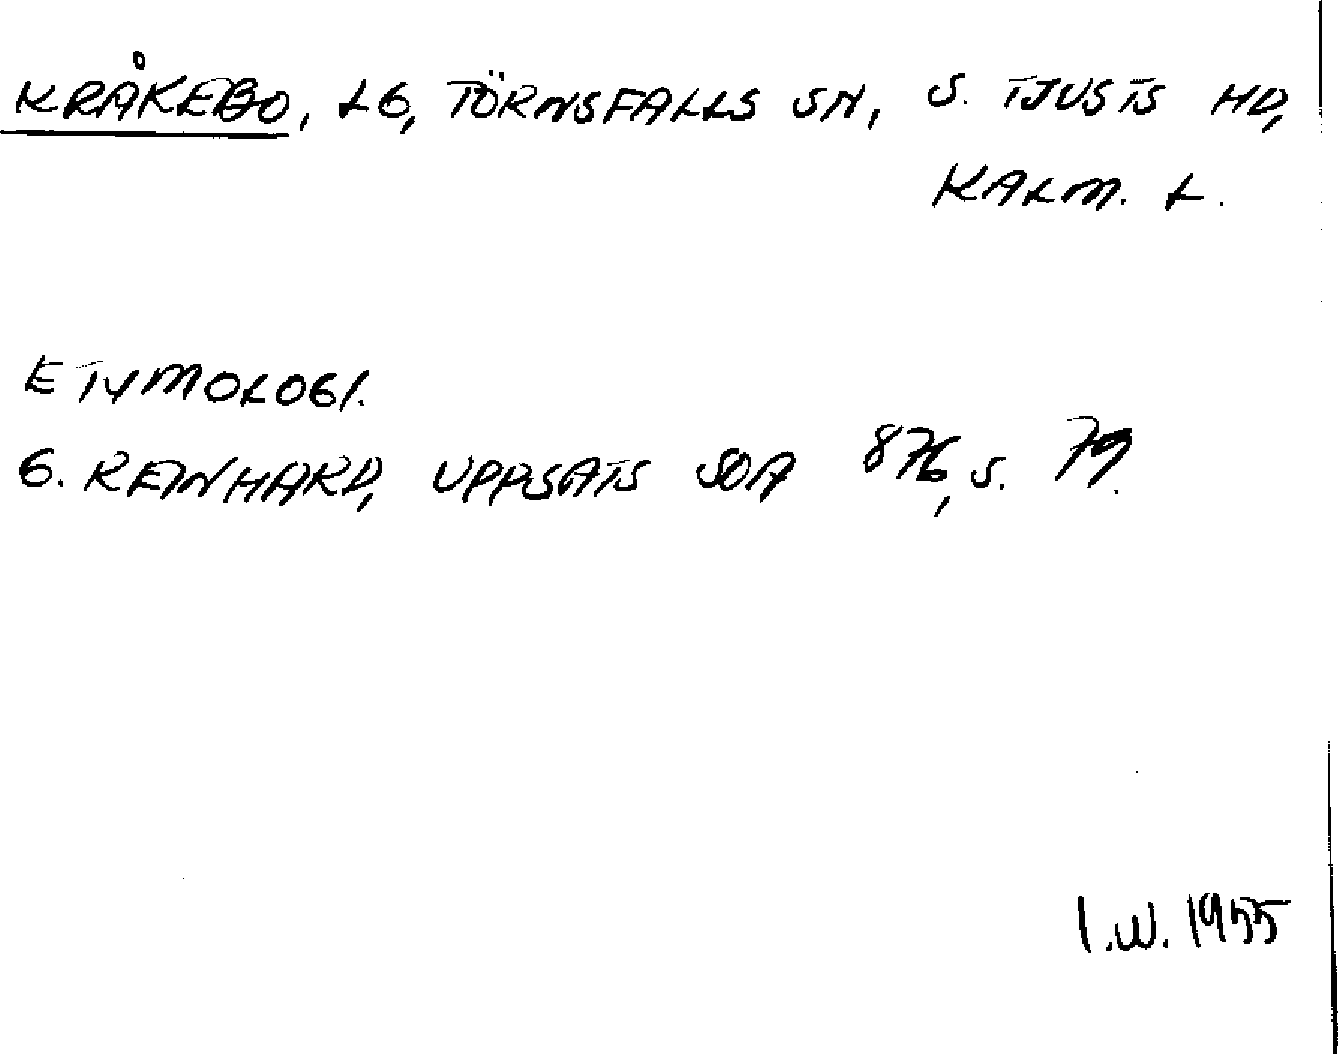 KRÅKEBO, LG, TÖRNSFALLS SN, S. TJUSTS HD,
KALM. L.
ETYMOLOGI.
G. REINHARD, UPPSATS SOA 876, S. 79.
I.W. 1955